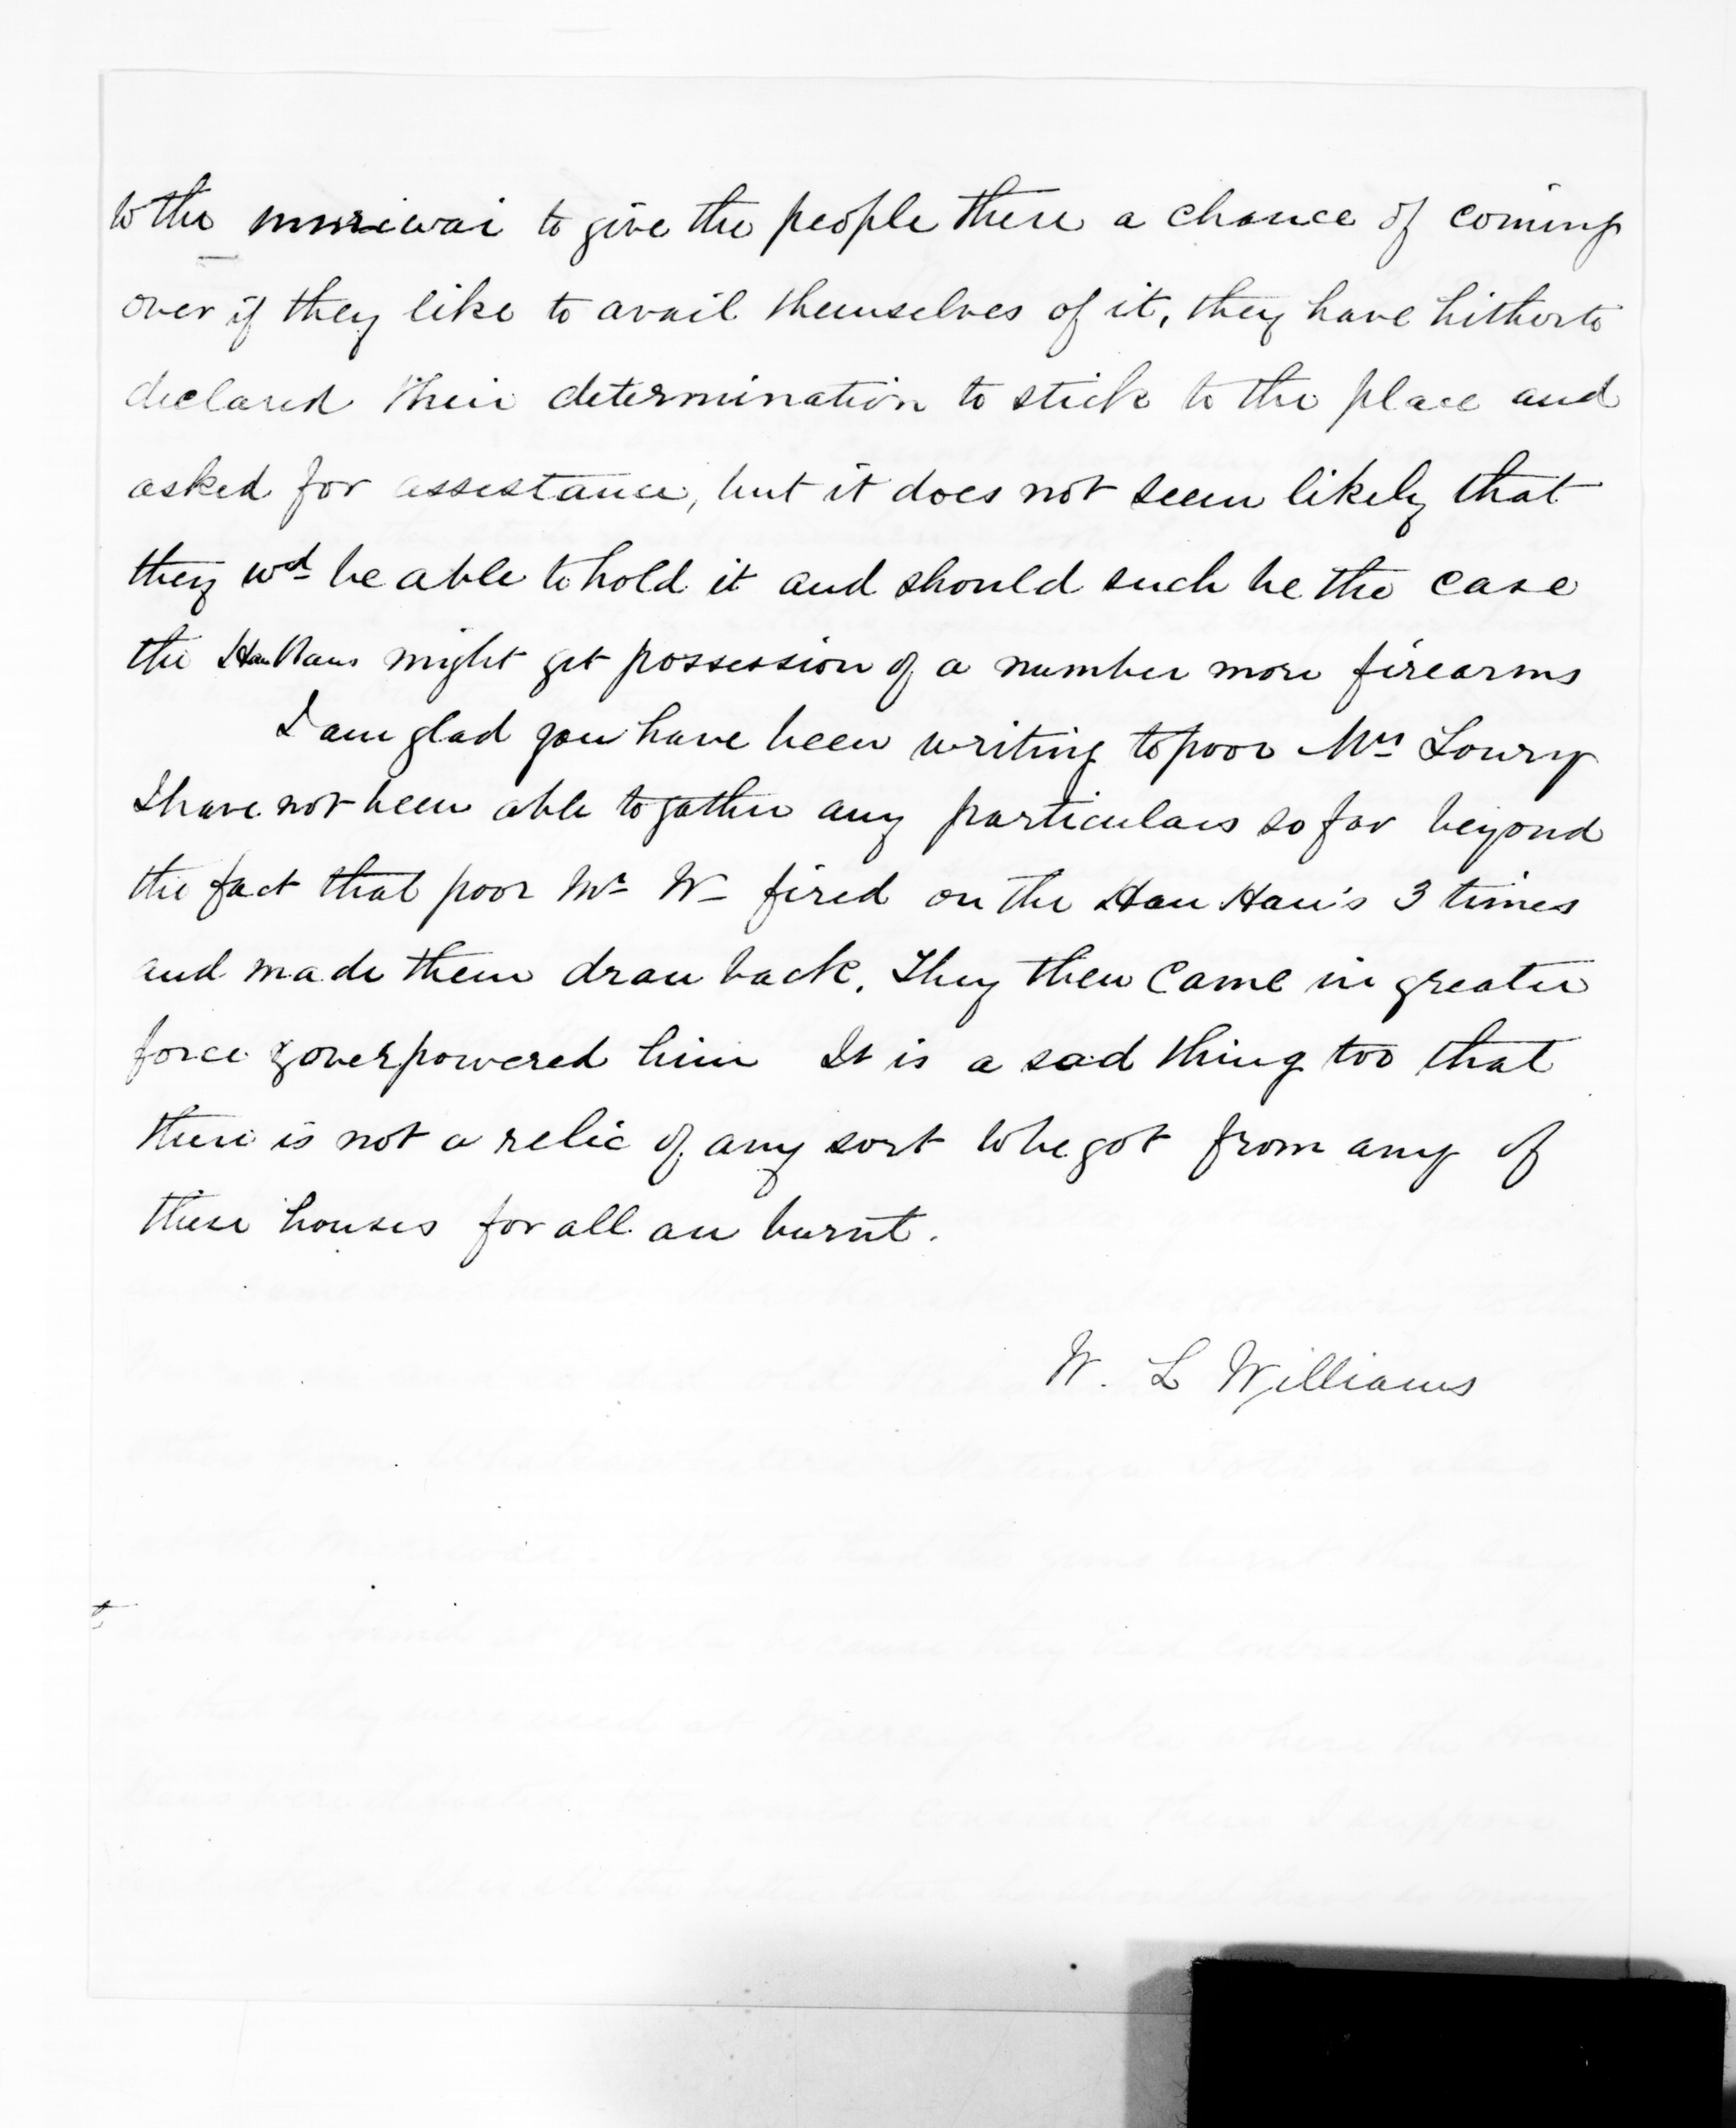 to the muriwai to give the people there a chance of coming
over if they like to avail themselves of it, they have hitherto
declared their determination to stick to the place and
asked for assistance, but it does not seem likely that
they wd be able to hold it and should such be the case
the Hau Haus might get possession of a number more firearms
I am glad you have been writing to poor Mrs Lowry
I have not been able to gather any particulars so far beyond
the fact that poor Mr W— fired on the Hau Hau's 3 times
and made them draw back. They then came in greater
force & overpowered him It is a sad thing too that
there is not a relic of any sort to be got from any of
these houses for all are burnt.
W. L Williams